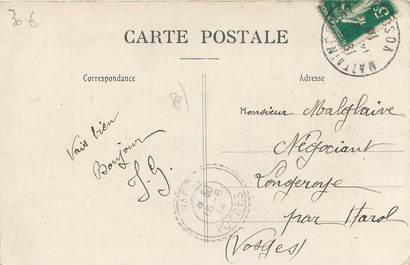 30 €
CARTE POSTALE
Correspondance
Adresse
88)
Vais bien
Bonjour
J. G.
Monsieur Malglaive
Négociant
Longeroye
par Harol
(Vosges)
VOSGES